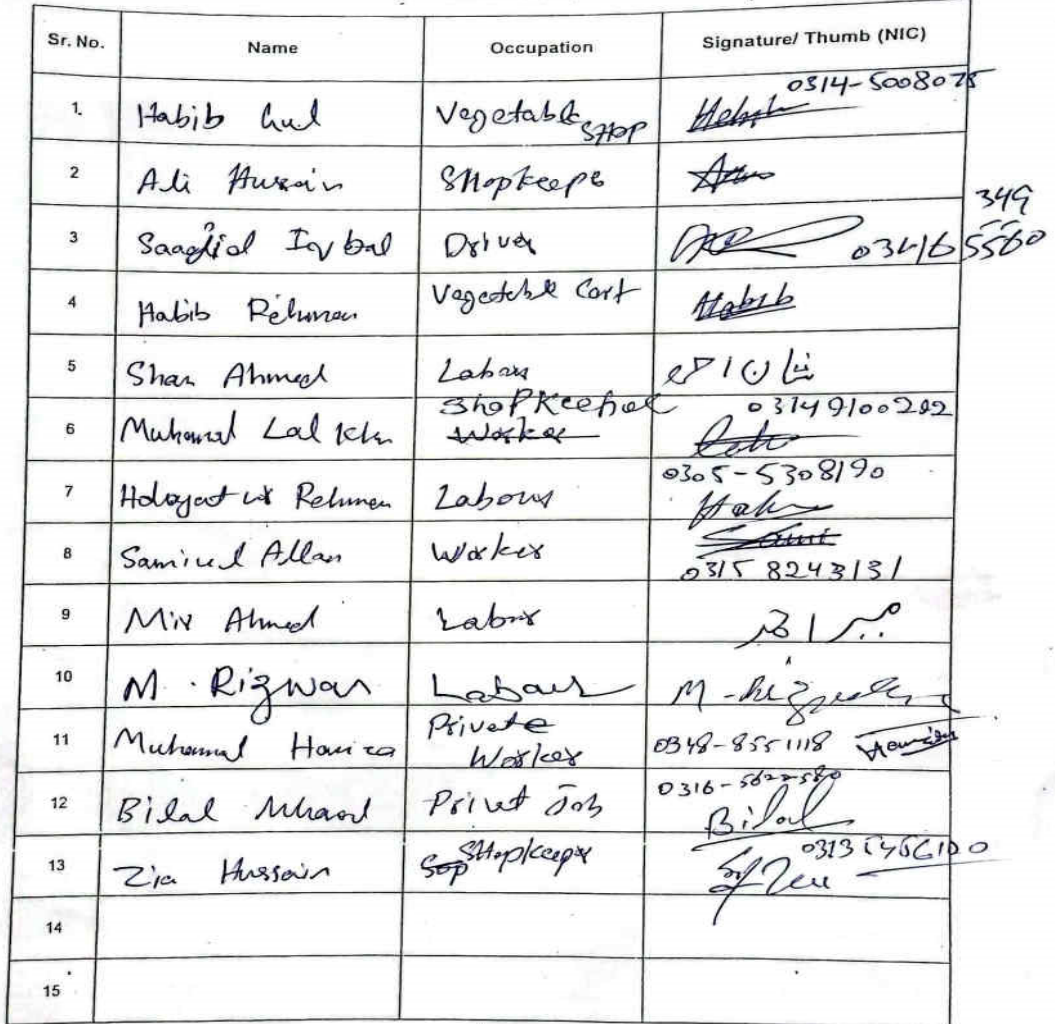 Sr. No. Name Occupation Signature/ Thumb (NIC)
1. Habib Gul Vegetable SHOP 0314-5008075
2 Ali Husain SHopkeepe
3 Iqbal Driver 03416 5560 349
4 Habib Rehman Vegetable Cart Habib
5 Shan Ahmed Labour شان احمد
6 Muhamad Lal Khan ShopKeeper Worker 03149100202
7 Rehman Labour 0305-5308190
8 Samiul Allah Worker Sami 0315 8243131
9 Mir Ahmed Labor میر احمد
10 M. Rizwan Labour M-Rizwan
11 Muhamad Hamza Private Worker 0348-8551118
12 Bilal Privet Job 0316- Bilal
13 Zia Hussain Sop SHopkeeper
14
15